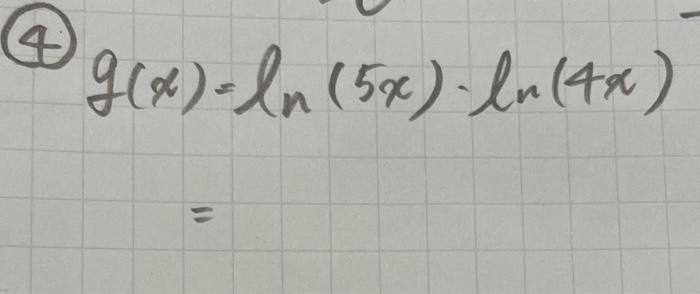 ④ g(x)=ln(5x)·ln(4x)
=